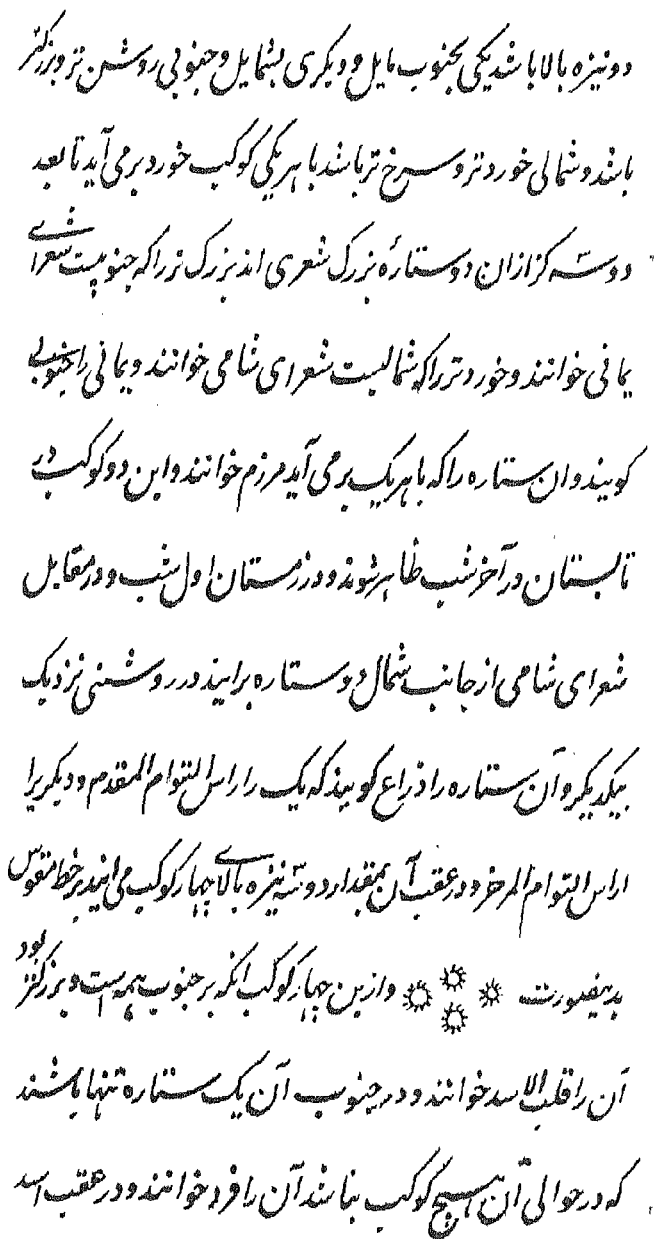 دو نیزه بالا باشد یکی بجنوب مایل و دیکری بشمایل و جنوبی روشن تر و بزرکتر
باشد و شمالی خورد تر و سرخ تر باشد با هر یکی کوکب خورد برمی آید تا بعد
دو سه کز ازان دو ستارهٔ بزرک شعری اند بزرک تر را که جنوبیست شعرای
یمانی خوانند و خورد تر را که شمالیست شعرای شامی خوانند و یمانی را جنوبی
کویند و ان ستاره را که با هر یک برمی آید مرزم خوانند و این دو کوکب در
تابستان در آخر شب ظاهر شوند و در زمستان اول شب و در مقابل
شعرای شامی از جانب شمال دو ستاره برایند در روشنی نزدیک
بیکدیکر و آن ستاره را ذراع کویند که یک را راس التوام المقدم و دیکریرا
راس التوام الموخر و در عقب آن بمقدار دو سه نیزه بالای چهار کوکب می ایند بر خط مقوس
بدینصورت وازین چهار کوکب انکه بر جنوب همه است و بزرکتر بود
آن را قلب الاسد خوانند و در جنوب آن یک ستاره تنها باشند
که در حوالی آن هیچ کوکب نباشد آن را فرد خوانند و در عقب اسد